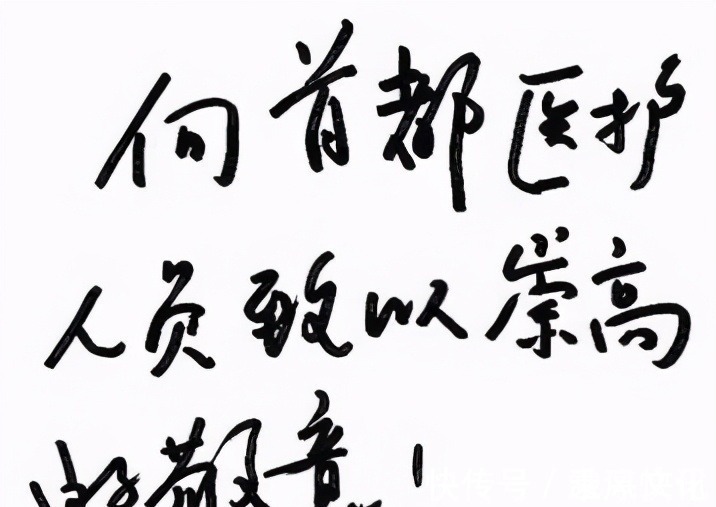 向首都医护
人员致以崇高
的敬意！
快传号／